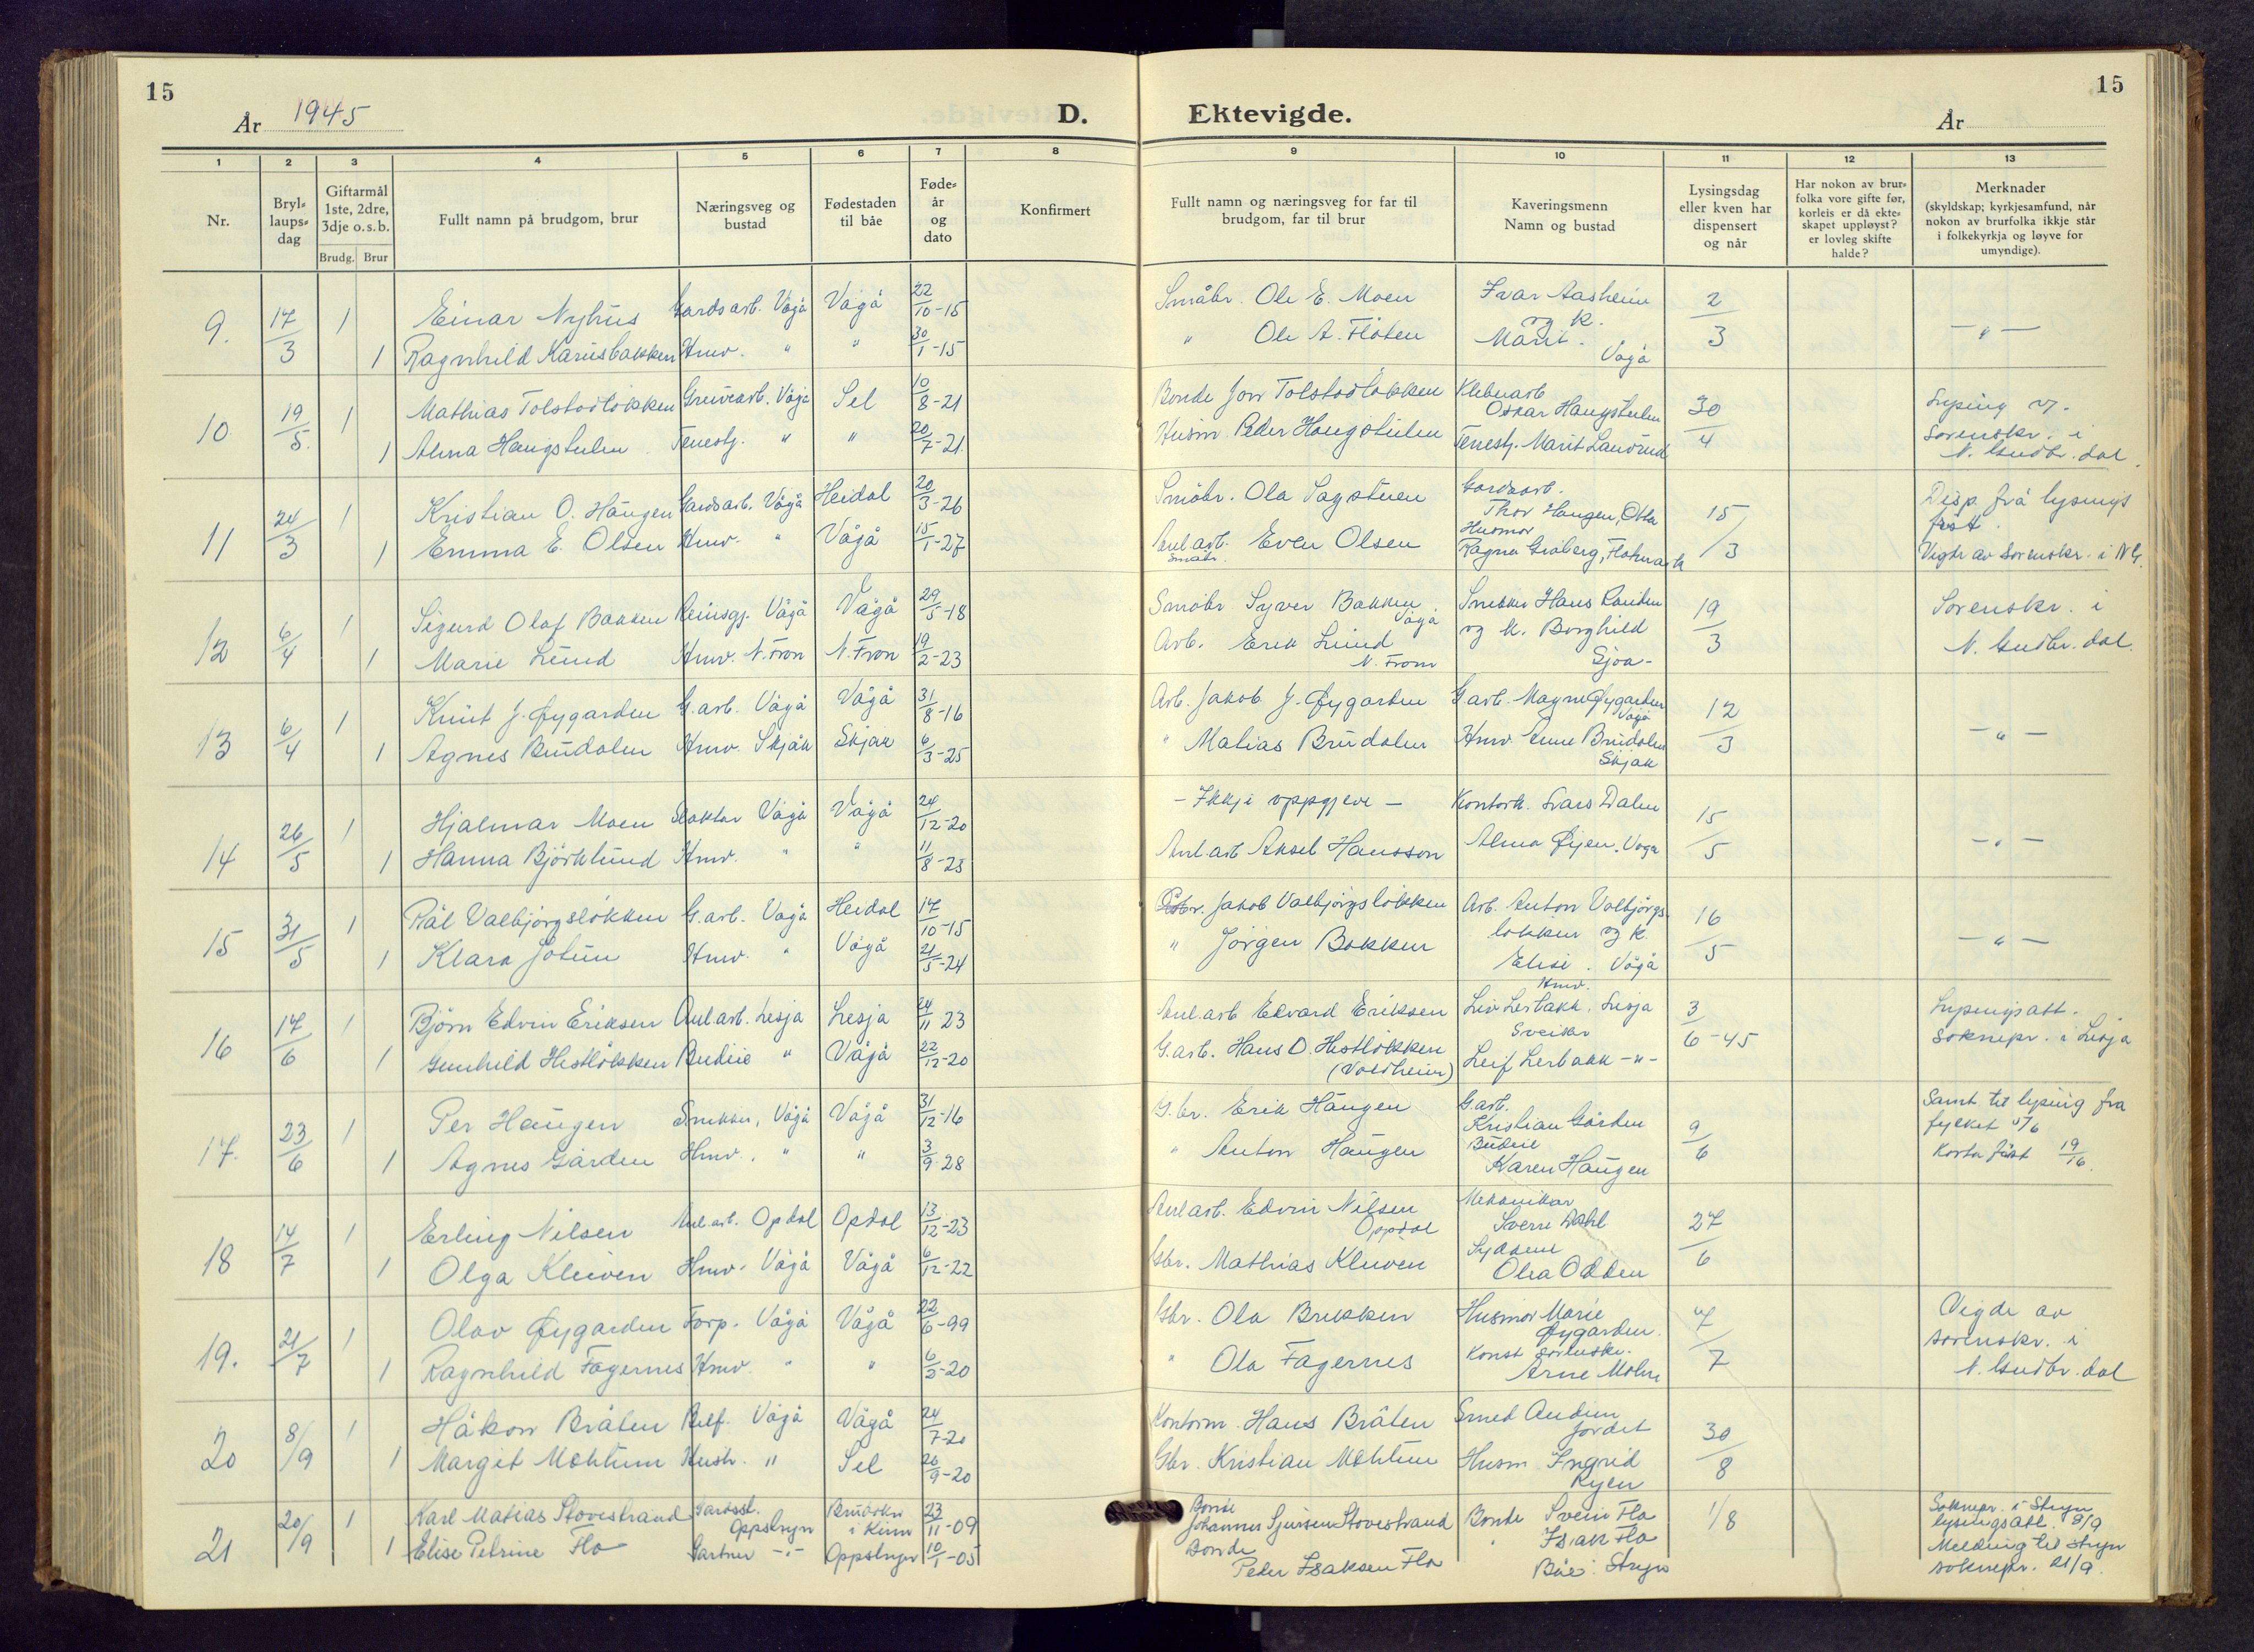 15
15
År 1945
D.
Ektevigde.
År
1 2 3 4 5 6 7 8 9 10 11 12 13
Nr.
Bryl-
laups-
dag
Giftarmål
1ste, 2dre,
3dje o.s.b.
Brudg. Brur
Fullt namn på brudgom, brur
Næringsveg og
bustad
Fødestaden
til båe
Føde-
år
og
dato
Konfirmert
Fullt namn og næringsveg for far til
brudgom, far til brur
Kaveringsmenn
Namn og bustad
Lysingsdag
eller kven har
dispensert
og når
Har nokon av brur-
folka vore gifte før,
korleis er då ekte-
skapet uppløyst?
er lovleg skifte
halde?
Merknader
(skyldskap; kyrkjesamfund, når
nokon av brurfolka ikkje står
i folkekyrkja og løyve for
umyndige).
9. 17/3 1 Einar Nyhus Gardsarb. Vågå Vågå 22/10-15 Småbr. Ole E. Moen Ivar Aasheim 2/3 – " –
og k.
1 Ragnhild Karusbakken Hmv. " " 30/1-15 " Ole A. Flåten Marit. Vågå
10 19/5. 1 Mathias Tolstadløkken Gruvearb. Vågå Sel 10/8-21 Bonde Jon Tolstadløkken Kleberarb 30/4
Oskar Haugstulen
1 Alma Haugstulen Tenestj. " " 20/7-21 Husm. Peder Haugstulen Tenestj. Marit Landrud
Sorenskr. i
N. Gudbr. dal.
11 24/3 1 Kristian O. Haugen Gardsarb. Vågå Heidal 20/3-26 Småbr. Ola Sagstuen Gardsarb.
Thor Haugen, Otta 15/3
Disp. frå lysings
frist.
1 Emma E. Olsen Hmv. " Vågå 15/1-27 Anl.arb. Even Olsen Husmor
Småbr. Ragna Graberg,
Vigde av Sorenskr. i N.G.
12 6/4 1 Sigurd Olaf Bakken Reinsgj. Vågå Vågå 29/5-18 Småbr Syver Bakken Vågå Snekker Hans Randen 19/3 Sorenskr. i
1 Marie Lund Hmv. N. Fron N. Fron 19/2-23 Arb. Erik Lund N. Fron og k. Borghild
Sjoa-
N. Gudbr. dal.
13 6/4 1 Knut J. Øygarden G.arb. Vågå Vågå 31/8-16 Arb. Jakob J. Øygarden G arb. Magne Øygarden Vågå 12/3 – " –
1 Agnes Brudalen Hmv. Skjåk Skjåk 6/3-25 " Matias Brudalen Hmv. Anne Brudalen
Skjåk
14 26/5 1 Hjalmar Moen Slaktar Vågå Vågå 24/12-20 – Ikkje oppgjeve – Kontork. Lars Dalen 15/5 – " –
1 Hanna Björklund Hmv. " " 11/8-23 Anl.arb Aksel Hansson Alma Øyen. Vågå
15 31/5 1 Pål Valbjørgsløkken G.arb. Vågå Heidal 17/10-15 Jakob Valbjørgsløkken Arb. Anton Valbjørgs- 16/5 – " –
løkken og k.
1 Klara Jotun Hmv. " Vågå 21/5-24 " Jörgen Bakken Elise. Vågå
16 17/6 1 Björn Edvin Eriksen Anl.arb. Lesja Lesja 24/11 23 Anl.arb Edvard Eriksen Liv Lerbakk. Lesja 3/6-45 Lysingsatt.
1 Gunhild Hestløkken Budeie " Vågå 22/12-20 G.arb. Hans O. Hestløkken Sveiser
(Valdheim) Leif Lerbakk –"–
Soknepr. i Lesja
17. 23/6 1 Per Haugen Snekker, Vågå Vågå 31/12-16 G.br. Erik Haugen G.arb. Kristian Gården 9/6
Samt. til lysing fra
fylket
1 Agnes Gården Hmv. " " 3/9-28 " Anton Haugen Budeie
Karen Haugen
18 14/7 1 Erling Nilsen Anl.arb. Opdal Opdal 13/12-23 Anl.arb. Edvin Nilsen Oppdal Mekanikar
Sverre Dahl 27/6
1 Olga Kleiven Hmv. Vågå Vågå 6/12-22 Gbr. Mathias Kleiven
Olea Odden
19. 21/7 1 Olav Øygarden Forp. Vågå Vågå 22/6-99 Gbr. Ola Brekken Husmor Marie
Øygarden 7/7 Vigde av
1 Ragnhild Fagernes Hmv. " " 6/2-20 " Ola Fagernes Konst sorenskr.
Arne Molne
sorenskr. i
N. Gudbr. dal
20 8/9 1 Håkon Bråten Vågå Vågå 24/7-20 Kontorm. Hans Bråten Smed Audun
Jordet 30/8
1 Margit Mehlum " Sel 26/9-20 Gbr. Kristian Mehlum Husm Ingrid
Ryen
21 20/9 1 Karl Matias Stovestrand Gardsst. Oppstryn i Kinn 23/11-09 Bonde
Johannes Sjursen Stovestrand Bonde Svein Flo 1/8
Soknepr. i Stryn
lysingsatt. 8/9
1 Elise Petrine Flo Gartner –"– Oppstryn 10/1-05 Bonde
Peder Isaksen Flo " Isak Flo
Båe: Stryn
Melding til Stryn
soknepr. 21/9.